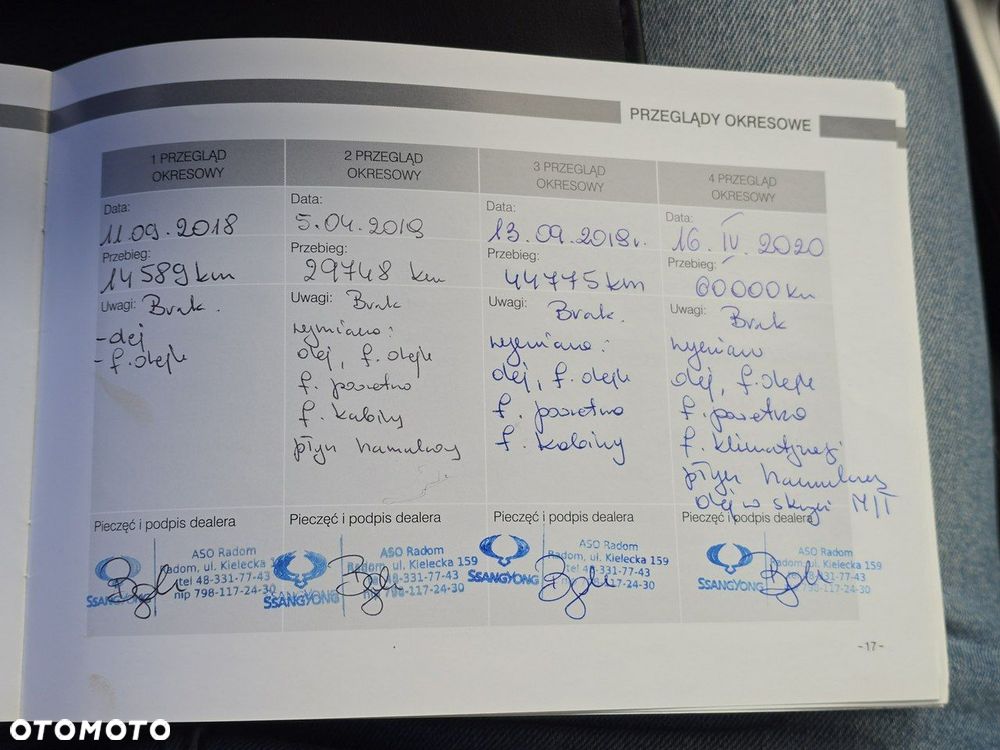 PRZEGLĄDY OKRESOWE
1 PRZEGLĄD
OKRESOWY
Data:
11.09.2018
Przebieg:
14589km
Uwagi: Brak.
-olej
-f.oleju
Pieczęć i podpis dealera
SSANGYONG
ASO Radom
Radom, ul. Kielecka 159
tel 48-331-77-43
nip 798-117-24-30
2 PRZEGLĄD
OKRESOWY
Data:
5.04.2019
Przebieg:
29748 km
Uwagi: Brak
wymiano:
olej, f. oleju
f. powietrza
f. kabiny
płyn hamulcowy
Pieczęć i podpis dealera
SSANGYONG
ASO Radom
Radom, ul. Kielecka 159
48-331-77-43
798-117-24-30
3 PRZEGLĄD
OKRESOWY
Data:
13.09.2019r.
Przebieg:
44775km
Uwagi: Brak.
wymiano:
olej, f. oleju
f. powietrza
f. kabiny
Pieczęć i podpis dealera
SSANGYONG
ASO Radom
Radom, ul. Kielecka 159
tel 48-331-77-43
117-24-30
4 PRZEGLĄD
OKRESOWY
Data:
16.IV.2020
Przebieg:
60000km
Uwagi: Brak
wymiano
olej, f.oleju
f. powietrza
f. klimatyzacji
płyn hamulcowy
olej w skrzyni M/T
Pieczęć i podpis dealera
SSANGYONG
ASO Radom
ul. Kielecka 159
331-77-43
798-117-24-30
-17-
OTOMOTO